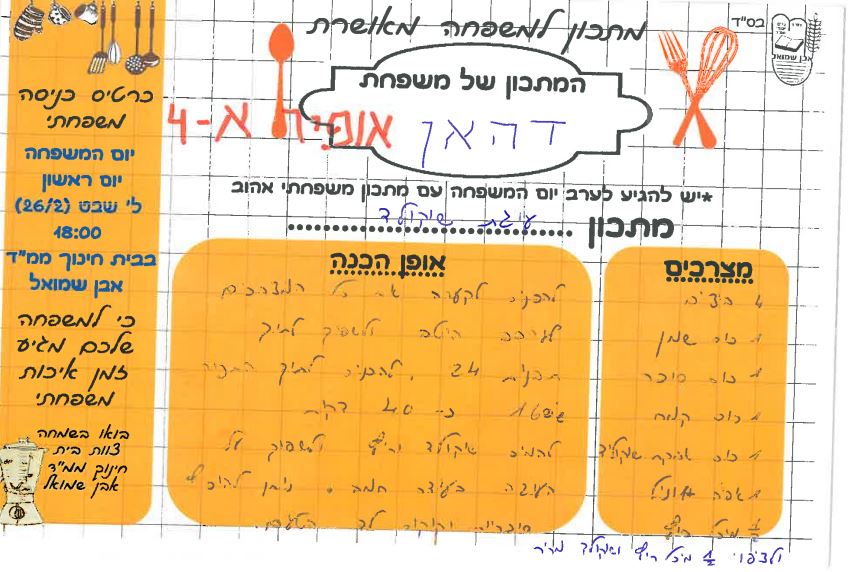 בס"ד
אבן שמואל
מתכון למשפחה מאושרת
המתכון של משפחת
דהאן
אופיה א-4
*יש להגיע לערב יום המשפחה עם מתכון משפחתי אהוב
מתכון עוגת שוקולד
מצרכים
4 ביצים
1 כוס שמן
1 כוס סוכר
1 כוס קמח
1 כוס שוקולד
1 אבקת וניל
1/2 מיכל ריץ'
אופן הכנה
להכניס לקערה את כל המצרכים
לערבב היטב ולשפוך לתוך
תבנית 24. להכניס לתוך התנור
ל- 40 דקות
להמיס שוקולד וריץ' ולשפוך על
העוגה בעודה חמה. ניתן להוסיף
סוכריות
ולציפוי 1/2 מיכל ריץ' ושוקולד מריר
כרטיס כניסה
משפחתי
יום המשפחה
יום ראשון
ל' שבט (26/2)
18:00
בבית חינוך ממ"ד
אבן שמואל
כי למשפחה
שלכם מגיע
זמן איכות
משפחתי
בואו בשמחה
צוות בית
חינוך ממ"ד
אבן שמואל